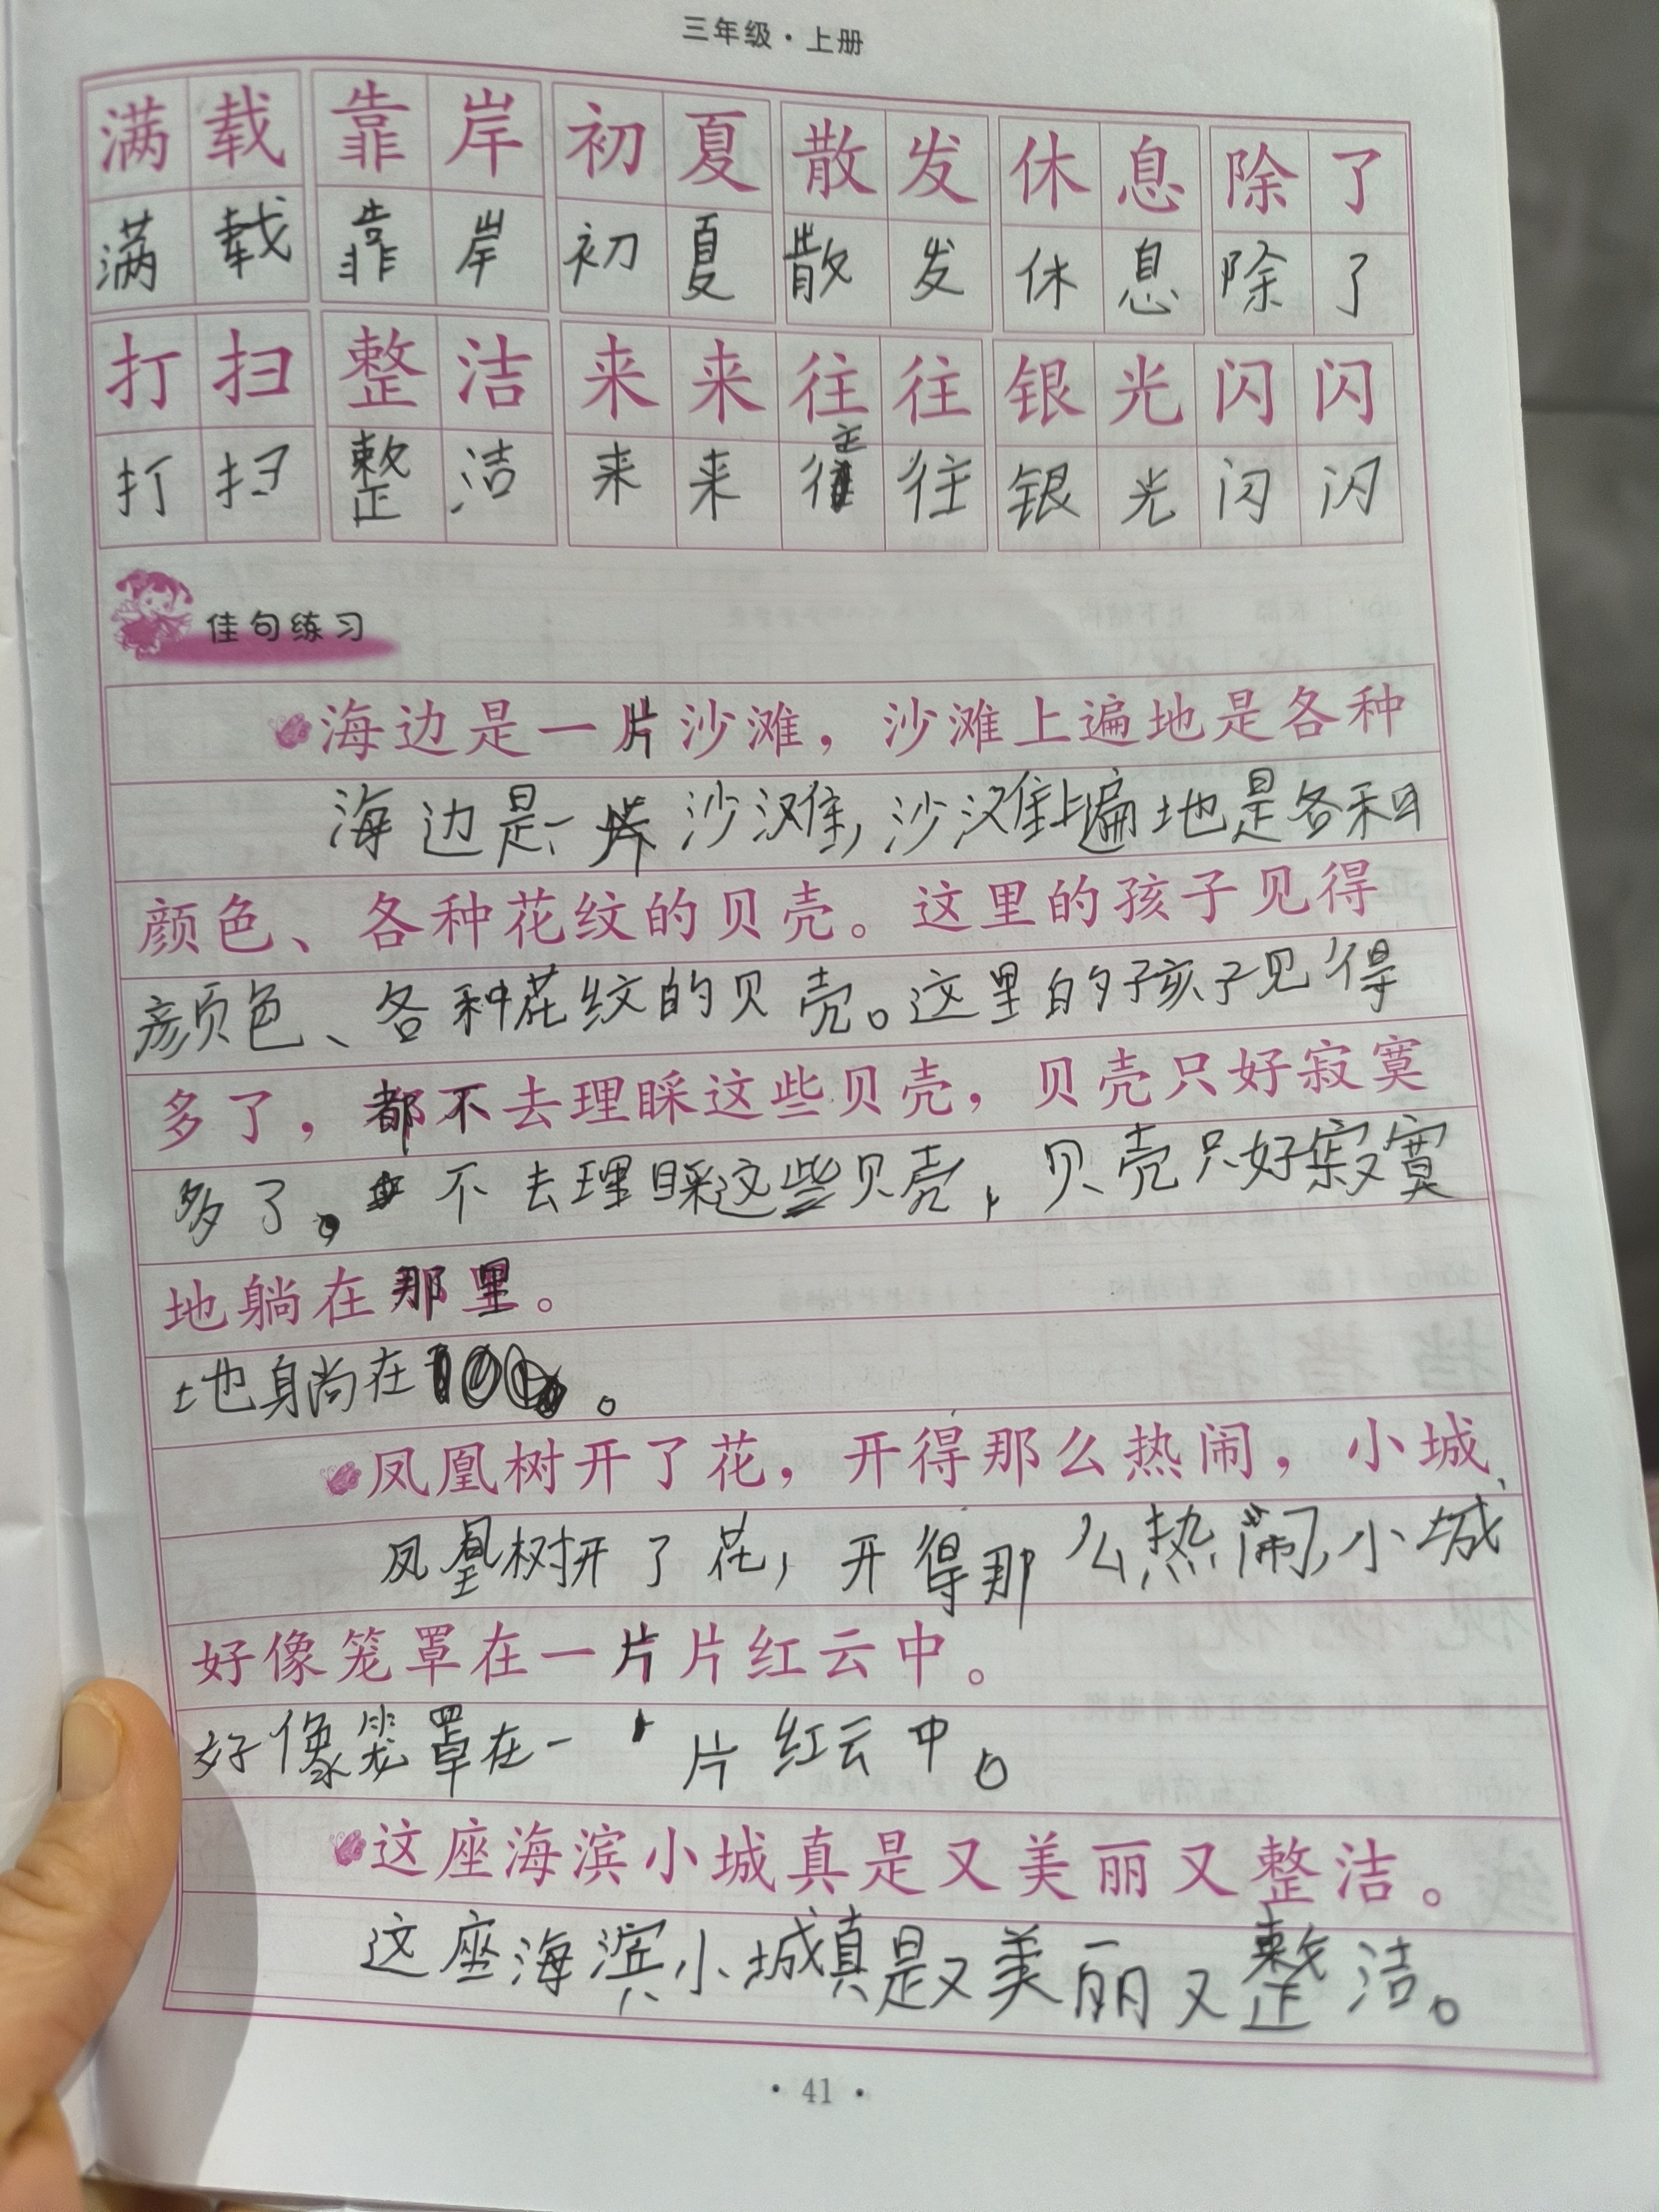 三年级·上册
满载 靠岸 初夏 散发 休息 除了
满载 靠岸 初夏 散发 休息 除了
打扫 整洁 来来往往 银光闪闪
打扫 整洁 来来往往 银光闪闪
佳句练习
海边是一片沙滩，沙滩上遍地是各种
海边是一 沙滩，沙滩上遍地是各种
颜色、各种花纹的贝壳。这里的孩子见得
颜色、各种花纹的贝壳。这里的孩子见得
多了，都不去理睬这些贝壳，贝壳只好寂寞
多了。不去理睬这些贝壳，贝壳只好寂寞
地躺在那里。
地躺在 。
凤凰树开了花，开得那么热闹，小城
凤凰树开了花，开得那么热闹，小城
好像笼罩在一片片红云中。
好像笼罩在一 片红云中。
这座海滨小城真是又美丽又整洁。
这座海滨小城真是又美丽又整洁。
·41·